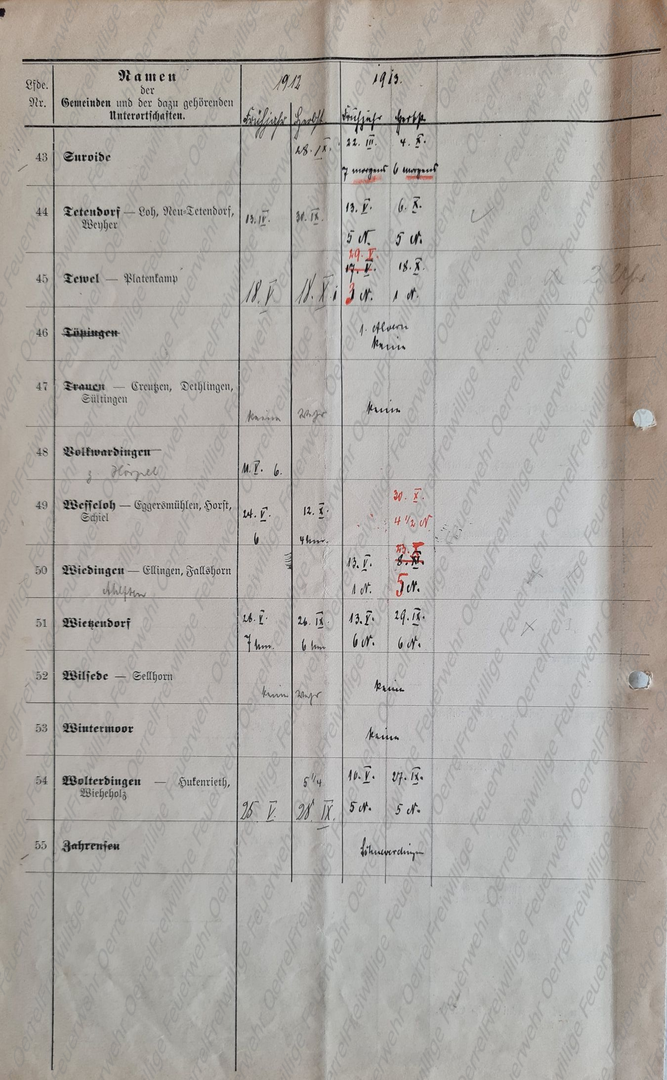 Lfde. Nr.
Namen
der
Gemeinden und der dazu gehörenden
Unterortschaften.
1912
1913.
Frühjahr Herbst. Frühjahr Herbst.
43 Suroide 28. IX. 22. III. 4. X.
7 morgens 6 morgens
44 Tetendorf — Loh, Neu-Tetendorf,
Weyher 13. IV. 30. IX. 13. V. 6. X.
5 N. 5 N.
29. V.
45 Tewel — Platenkamp 17. V. 18. X.
18. V. 18. X. 3 N. 1 N.
46 Töpingen
keine
47 Trauen — Creutzen, Dethlingen,
Sültingen
keine Wehr keine
48 Volkwardingen
z Hörpel 11. V. 6.
49 Wesseloh — Eggersmühlen, Horst,
Schiel
24. V. 12. X. 30. X.
6 4 4 1/2 N
50 Wiedingen — Ellingen, Fallshorn
13. V.
1 N. 5 N.
51 Wietzendorf 28. V. 26. IX. 13. V. 29. IX.
7 6 6 N. 6 N.
52 Wilsede — Sellhorn
keine Wehr keine
53 Wintermoor
keine
54 Wolterdingen — Hukenrieth,
Wieheholz
5 1/4 10. V. 27. IX.
25 V. 28 IX. 5 N. 5 N.
55 Zahrensen Schneverdingen
Freiwillige Feuerwehr Oerrel